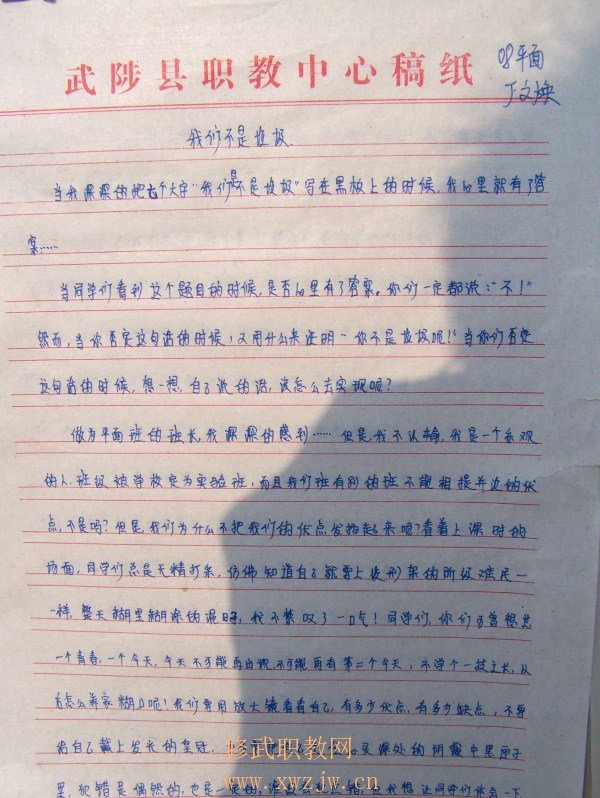 武陟县职教中心稿纸
08平面
丁文焕
我们不是垃圾.
当我深深的把七个大字"我们是不是垃圾"写在黑板上的时候,我心里就有了答
案……
当同学们看到这个题目的时候,是否心里有了答案。你们一定都说:"不!"
然而,当你否定这句话的时候,又用什么来证明"你不是垃圾呢!"当你们否定
这句话的时候,想一想,自己说的话,该怎么去实现呢?
做为平面班的班长,我深深的感到……但是我不认输,我是一个乐观
的人.班级被学校定为实验班,而且我们班有别的班不能相提并论的优
点,不是吗?但是,我们为什么不把我们的优点发扬起来呢?看着上课时的
场面,同学们总是无精打采,仿佛知道自己就要上绞形架的阶级难民一
一样,整天糊里糊涂的混日子,我不禁叹了一口气!同学们,你们可曾想想
一个青春,一个今天,今天不可能再出现,不可能再有第二个今天,不学个一技之长,从
后怎么养家糊口呢?我们要用放大镜看看自己,有多少优点,有多少缺点,不要
给自己戴上发长的皇冠,
里.犯错是偶然的,也是一定的,
修武职教网
www.xwzjw.cn